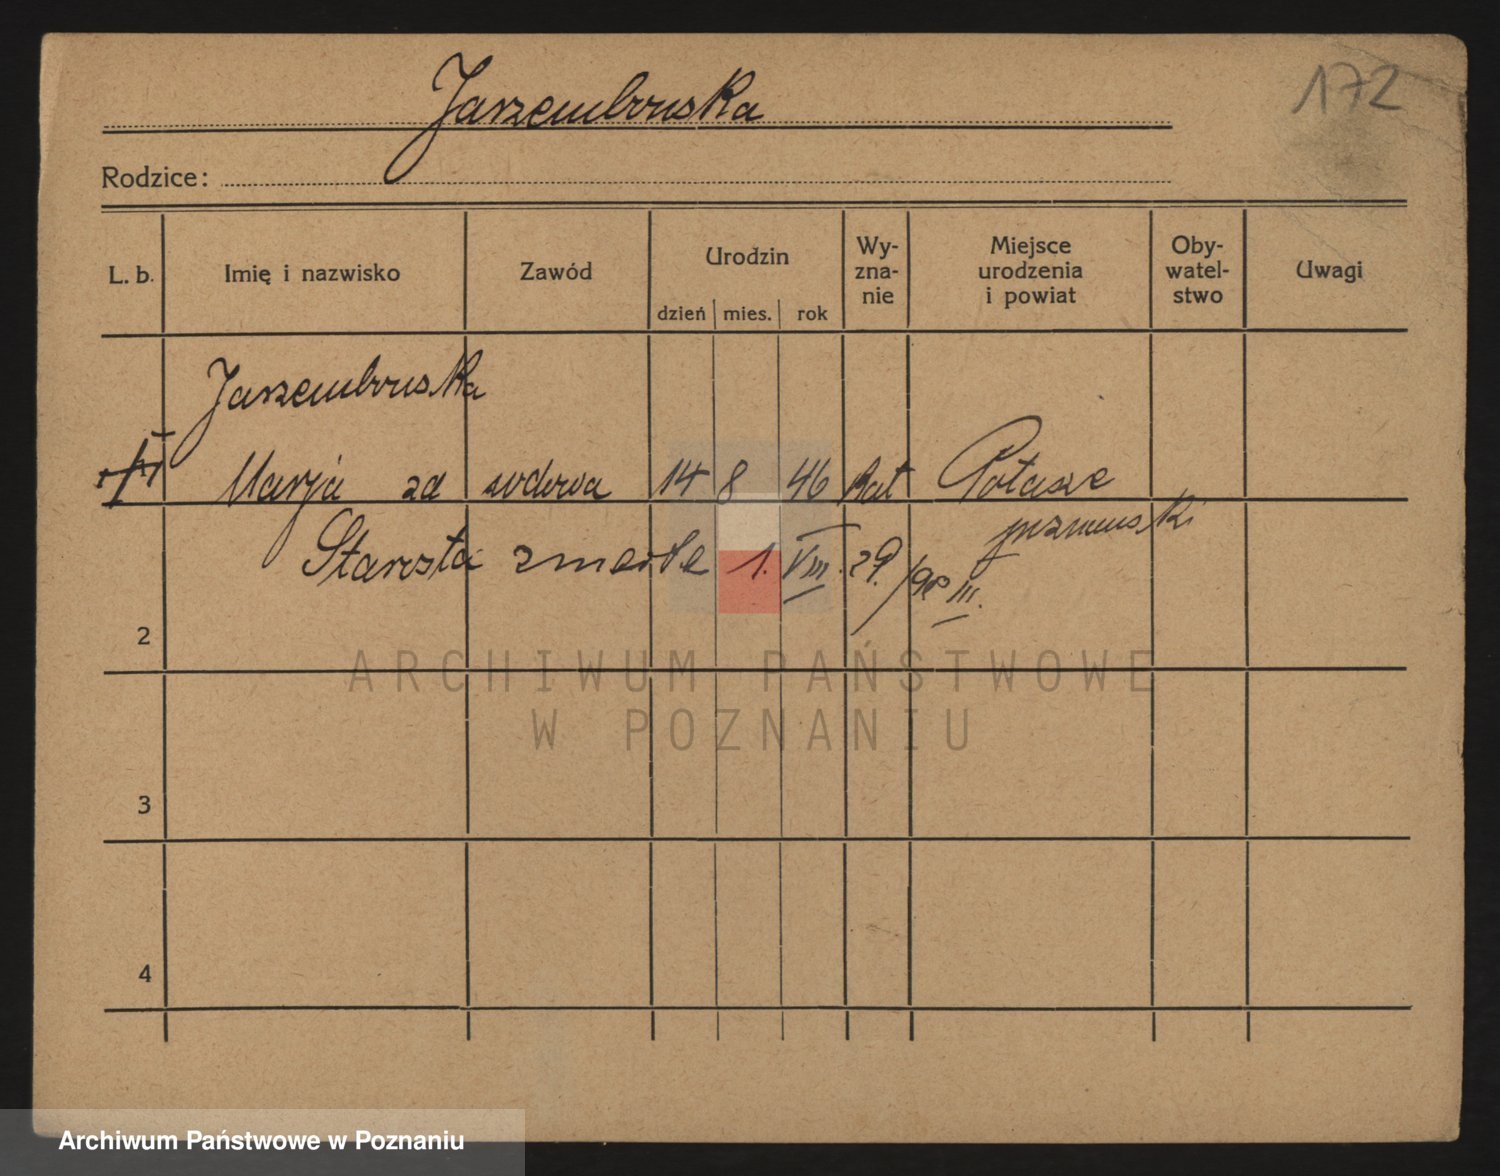 172
Jarzembowska
Rodzice:
L. b. Imię i nazwisko Zawód Urodzin dzień mies. rok Wy-zna-nie Miejsce urodzenia i powiat Oby-watel-stwo Uwagi
Jarzembowska
Marja wdowa 14 8 46 Kat Potasze
poznański
Starsza zmarła 1. VIII. 29. III.
2
3
4
ARCHIWUM PAŃSTWOWE
W POZNANIU
Archiwum Państwowe w Poznaniu